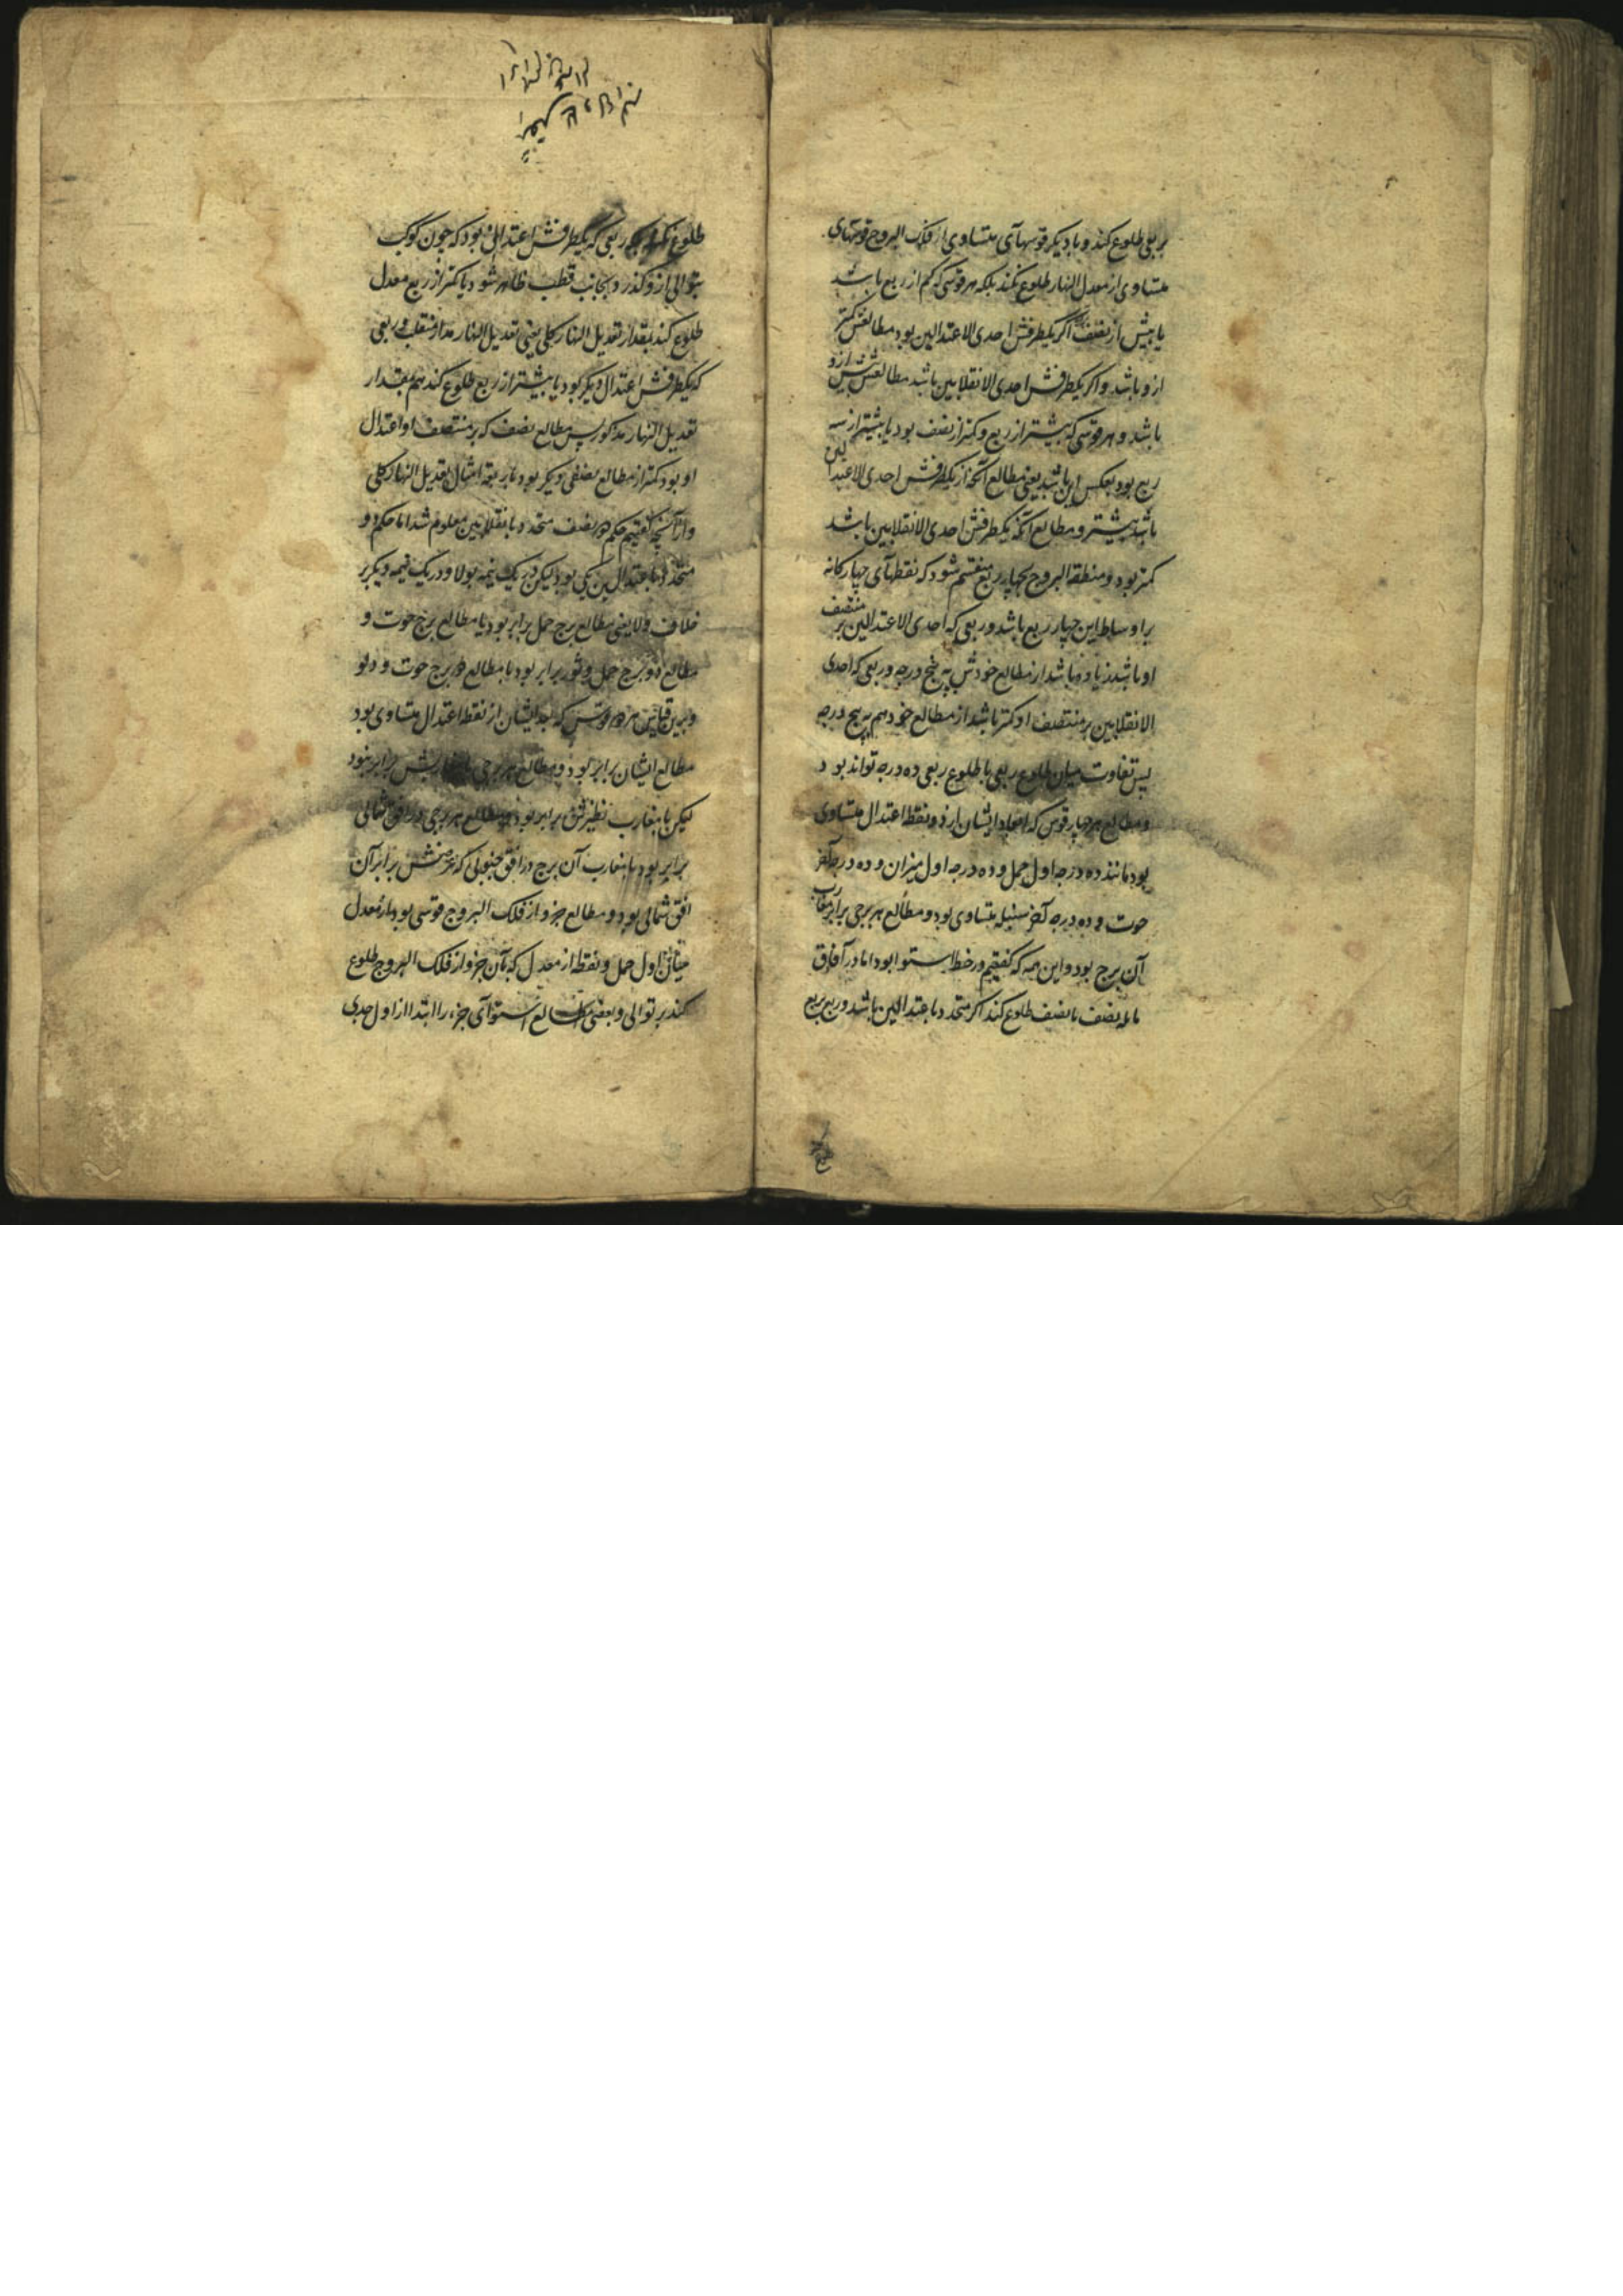 بربعی طلوع کند و با دیگر قوسهآی متساوی از فلک البروج قوسهای
متساوی از معدل النهار طلوع نکند بلکه هر قوسی که کم از ربع باشد
یا بیش از نصف اکر یکطرفش احدی الاعتدالین بود مطالعش کمتر
ازو باشد و اکر یکطرفش احدی الانقلابین باشد مطالعش بیش ازو
باشد و هر قوسی که بیشتر از ربع و کمتر از نصف بود یا بیشتر از سه
ربع بود بعکس این باشد یعنی مطالع آنکه از یکطرفش احدی الاعتدالین
باشد بیشتر و مطالع آنکه یکطرفش احدی الانقلابین باشد
کمتر بود و منطقة البروج بچهار ربع منقسم شود که نقطهآی چهارکانه
بر اوساط این چهار ربع باشد و ربعی که احدی الاعتدالین بر منتصف
او باشد زیاده باشد از مطالع خودش به پنج درجه و ربعی که احدی
الانقلابین بر منتصف او کمتر باشد از مطالع خود هم به پنج درجه
پس تفاوت میان طلوع ربعی با طلوع ربعی ده درجه تواند بود
و مطالع هر چهار قوس که ابعاد ایشان از دو نقطه اعتدال متساوی
بود مانند ده درجه اول حمل و ده درجه اول میزان و ده درجه آخر
حوت و ده درجه آخر سنبله متساوی بود و مطالع هر برجی برابر مغارب
آن برج بود و این همه که کفتیم در خط استوا بود اما در آفاق
مایله نصف با نصف طلوع کند اکر متحدد باعتدالین باشد و ربع بربع
طلوع نکند ربعی که یکطرفش اعتدالی بود که چون کوکب
بتوالی ازو کذرد بجانب قطب ظاهر شود یا کمتر از ربع معدل
طلوع کند بمقدار تعدیل النهار کلی یعنی تعدیل النهار مدار منقلب و ربعی
که یکطرفش اعتدال دیکر بود یا بیشتر از ربع طلوع کند هم بمقدار
تعدیل النهار مذکور پس مطالع نصف که بر منتصف او اعتدال
او بود کمتر از مطالع نصفی دیکر بود باربعة امثال تعدیل النهار کلی
و از آنچه کفتیم حکم هر نصف متحدد بانقلابین معلوم شد اما حکم دو
متحدد باعتدالین یکی بود لیکن در یک نیمه بولا و در یک نیمه دیکر بر
خلاف ولا یعنی مطالع برج حمل برابر بود با مطالع برج حوت و
مطالع دو برج حمل و ثور برابر بود با مطالع دو برج حوت و دلو
و برین قیاس هر دو قوس که بعد ایشان از نقطه اعتدال متساوی بود
مطالع ایشان برابر بود و مطالع هر برجی با مغاربش برابر نبود
لیکن با مغارب نظیرش برابر بود و مطالع هر برجی در افق شمالی
برابر بود با مغارب آن برج در افق جنوبی که عرضش برابر آن
افق شمالی بود و مطالع جزو از فلک البروج قوسی بود از معدل
میان اول حمل و نقطه از معدل که با آن جزو از فلک البروج طلوع
کند بر توالی و بعضی مطالع استوآی جزء را ابتدا از اول جدی